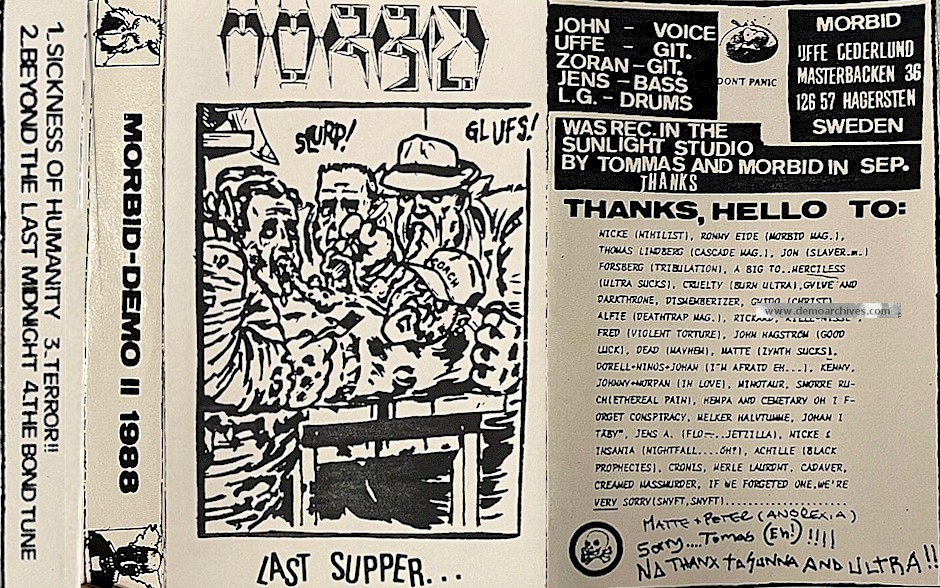 1. SICKNESS OF HUMANITY 3. TERROR!!
2. BEYOND THE LAST MIDNIGHT 4. THE BOND TUNE
MORBID-DEMO II 1988
MORBID
SLURP!
GLUFS!
COACH
LAST SUPPER...
JOHN - VOICE
UFFE - GIT.
ZORAN-GIT.
JENS - BASS
L.G. - DRUMS
DON'T PANIC
MORBID
UFFE CEDERLUND
MASTERBACKEN 36
126 57 HAGERSTEN
SWEDEN
WAS REC. IN THE
SUNLIGHT STUDIO
BY TOMMAS AND MORBID IN SEP.
THANKS
THANKS, HELLO TO:
NICKE (NIHILIST), RONNY EIDE (MORBID MAG.),
THOMAS LINDBERG (CASCADE MAG.), JON (SLAVER...)
FORSBERG (TRIBULATION), A BIG TO..MERCILESS
(ULTRA SUCKS), CRUELTY (BURN ULTRA), GYLVE AND
DARKTHRONE, DISMEMBERIZER, GUIDO (CHRIST)
www.demoarchives.com
ALFIE (DEATHTRAP MAG.), RICKARD,
FRED (VIOLENT TORTURE), JOHN HAGSTROM (GOOD
LUCK), DEAD (MAYHEM), MATTE (ZYNTH SUCKS),
DORELL+NINOS+JOHAN (I'M AFRAID EH...), KENNY,
JOHNNY+NORPAN (IN LOVE), MINOTAUR, SMORRE RU-
CH(ETHEREAL PAIN), HEMPA AND CEMETARY OH I F-
ORGET CONSPIRACY, MELKER HALVTUMME, JOHAN I
TÄBY", JENS A. (FLO-...JETZILLA), NICKE &
INSANIA (NIGHTFALL....OH?), ACHILLE (BLACK
PROPHECIES), CRONIS, HERLE LAURDHT. CADAVER,
CREAMED MASSMURDER, IF WE FORGETED ONE, WE'RE
VERY SORRY (SNYFT, SNYFT)..................
MATTE + PETER (ANOREXIA)
Sorry.... Tomas (Eh!) !!!!
NO THANX TO SUNNA AND ULTRA!!